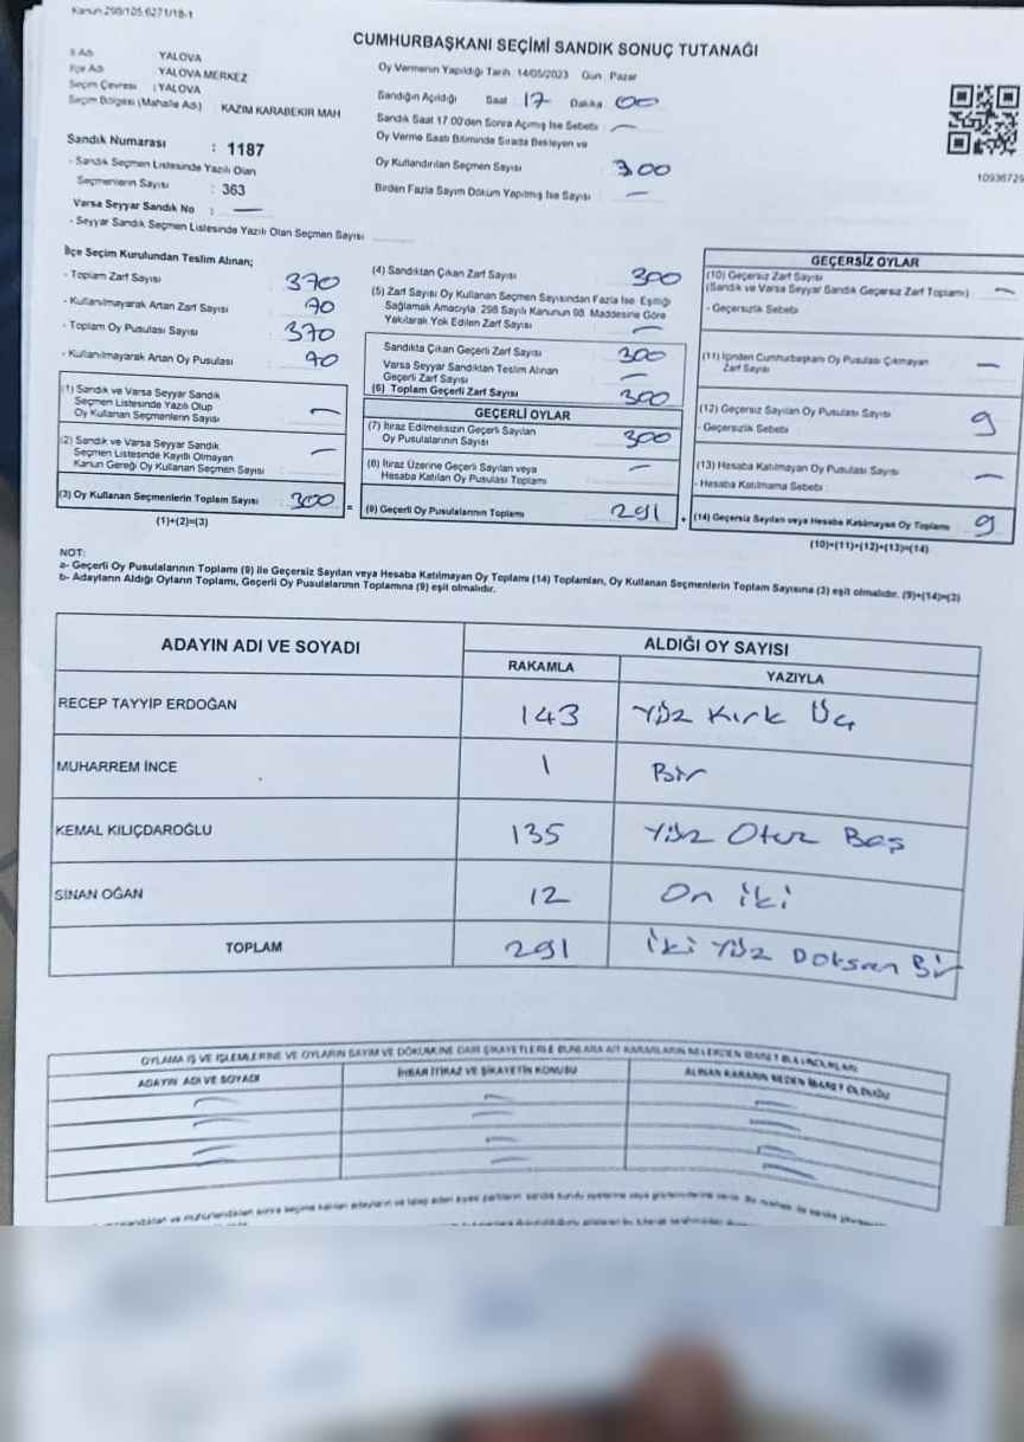 Kanun 298/105,6271/18-1
CUMHURBAŞKANI SEÇİMİ SANDIK SONUÇ TUTANAĞI
İl Adı : YALOVA
İlçe Adı : YALOVA MERKEZ
Seçim Çevresi : YALOVA
Seçim Bölgesi (Mahalle Adı) KAZIM KARABEKIR MAH
Sandık Numarası : 1187
- Sandık Seçmen Listesinde Yazılı Olan
Seçmenlerin Sayısı : 363
Varsa Seyyar Sandık No : —
- Seyyar Sandık Seçmen Listesinde Yazılı Olan Seçmen Sayısı
Oy Vermenin Yapıldığı Tarih : 14/05/2023 Gün : Pazar
Sandığın Açıldığı Saat : 17 Dakika 00
Sandık Saat 17.00'den Sonra Açılmış İse Sebebi : —
Oy Verme Saati Bitiminde Sırada Bekleyen ve
Oy Kullandırılan Seçmen Sayısı : 300
Birden Fazla Sayım Döküm Yapılmış İse Sayısı : —
10936729
İlçe Seçim Kurulundan Teslim Alınan;
- Toplam Zarf Sayısı 370
- Kullanılmayarak Artan Zarf Sayısı 70
- Toplam Oy Pusulası Sayısı 370
- Kullanılmayarak Artan Oy Pusulası 70
(1) Sandık ve Varsa Seyyar Sandık
Seçmen Listesinde Yazılı Olup
Oy Kullanan Seçmenlerin Sayısı —
(2) Sandık ve Varsa Seyyar Sandık
Seçmen Listesinde Kayıtlı Olmayan
Kanun Gereği Oy Kullanan Seçmen Sayısı —
(3) Oy Kullanan Seçmenlerin Toplam Sayısı : 300 =
(1)+(2)=(3)
(4) Sandıktan Çıkan Zarf Sayısı 300
(5) Zarf Sayısı Oy Kullanan Seçmen Sayısından Fazla İse, Eşitliği
Sağlamak Amacıyla, 298 Sayılı Kanunun 98. Maddesine Göre
Yakılarak Yok Edilen Zarf Sayısı —
Sandıkta Çıkan Geçerli Zarf Sayısı 300
Varsa Seyyar Sandıktan Teslim Alınan
Geçerli Zarf Sayısı —
(6) Toplam Geçerli Zarf Sayısı 300
GEÇERLİ OYLAR
(7) İtiraz Edilmeksizin Geçerli Sayılan
Oy Pusulalarının Sayısı 300
(8) İtiraz Üzerine Geçerli Sayılan veya
Hesaba Katılan Oy Pusulası Toplamı —
(9) Geçerli Oy Pusulalarının Toplamı 291 +
GEÇERSİZ OYLAR
(10) Geçersiz Zarf Sayısı
(Sandık ve Varsa Seyyar Sandık Geçersiz Zarf Toplamı) —
- Geçersizlik Sebebi :
(11) İçinden Cumhurbaşkanı Oy Pusulası Çıkmayan
Zarf Sayısı —
(12) Geçersiz Sayılan Oy Pusulası Sayısı 9
- Geçersizlik Sebebi :
(13) Hesaba Katılmayan Oy Pusulası Sayısı —
- Hesaba Katılmama Sebebi :
(14) Geçersiz Sayılan veya Hesaba Katılmayan Oy Toplamı 9
(10)+(11)+(12)+(13)=(14)
NOT:
a- Geçerli Oy Pusulalarının Toplamı (9) ile Geçersiz Sayılan veya Hesaba Katılmayan Oy Toplamı (14) Toplamları, Oy Kullanan Seçmenlerin Toplam Sayısına (3) eşit olmalıdır. (9)+(14)=(3)
b- Adayların Aldığı Oyların Toplamı, Geçerli Oy Pusulalarının Toplamına (9) eşit olmalıdır.
ADAYIN ADI VE SOYADI ALDIĞI OY SAYISI
RAKAMLA YAZIYLA
RECEP TAYYİP ERDOĞAN 143 Yüz Kırk Üç
MUHARREM İNCE 1 Bir
KEMAL KILIÇDAROĞLU 135 Yüz Otuz Beş
SİNAN OĞAN 12 On iki
TOPLAM 291 İki Yüz Doksan Bir
OYLAMA İŞ VE İŞLEMLERİNE VE OYLARIN SAYIM VE DÖKÜMÜNE DAİR ŞİKAYETLERLE BUNLARA AİT KARARLARIN NELERDEN İBARET BULUNDUKLARI
ADAYIN ADI VE SOYADI İHBAR İTİRAZ VE ŞİKAYETİN KONUSU ALINAN KARARIN NEDEN İBARET OLDUĞU